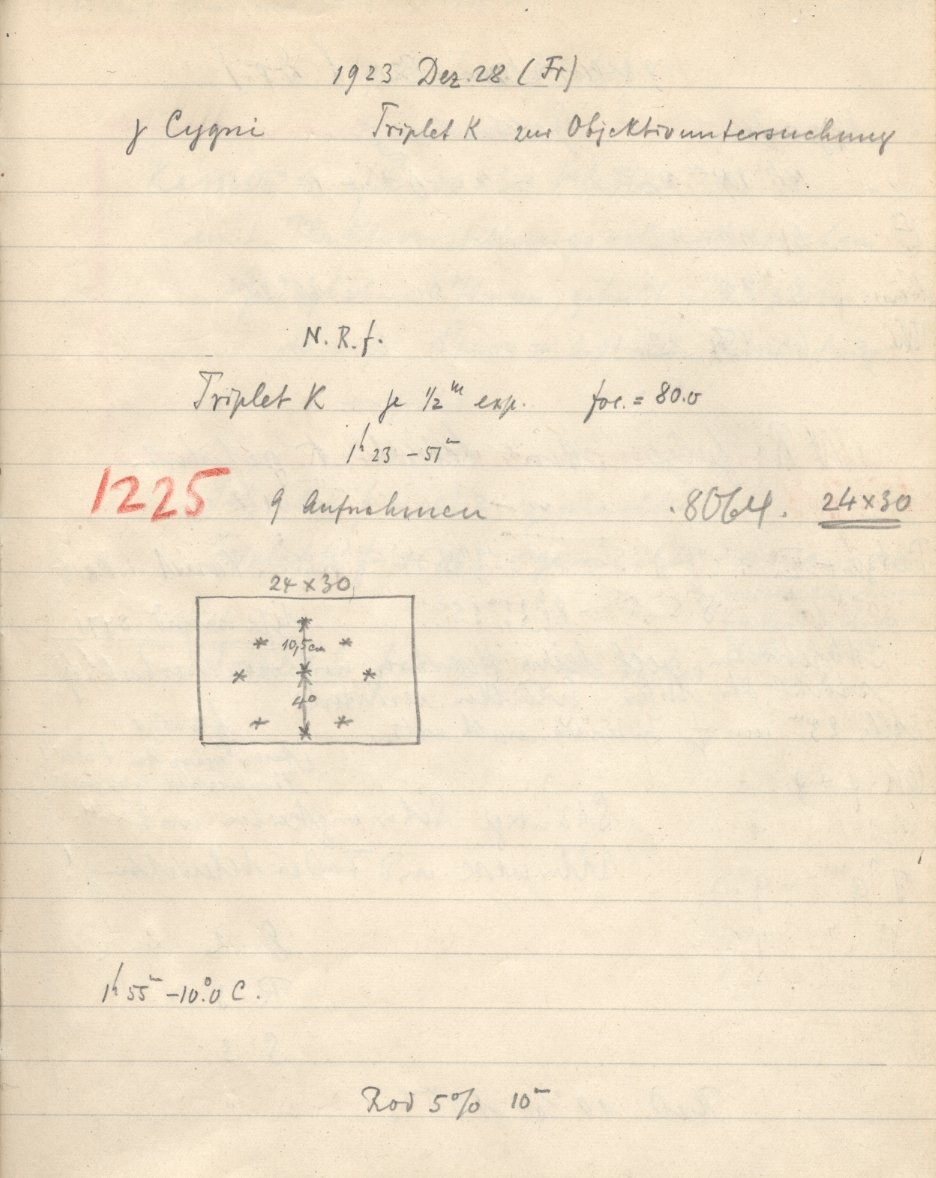 1923 Dez. 28 (Fr)
γ Cygni Triplet K zur Objektivuntersuchung
N. R. f.
Triplet K je 1/2ᵐ exp. foc. = 80.0
1ʰ 23 – 51ᵐ
1225 9 Aufnahmen 24×30
24×30
10,5cm
4°
1ʰ 55ᵐ –10.°0 C.
Rod 5% 10ᵐ